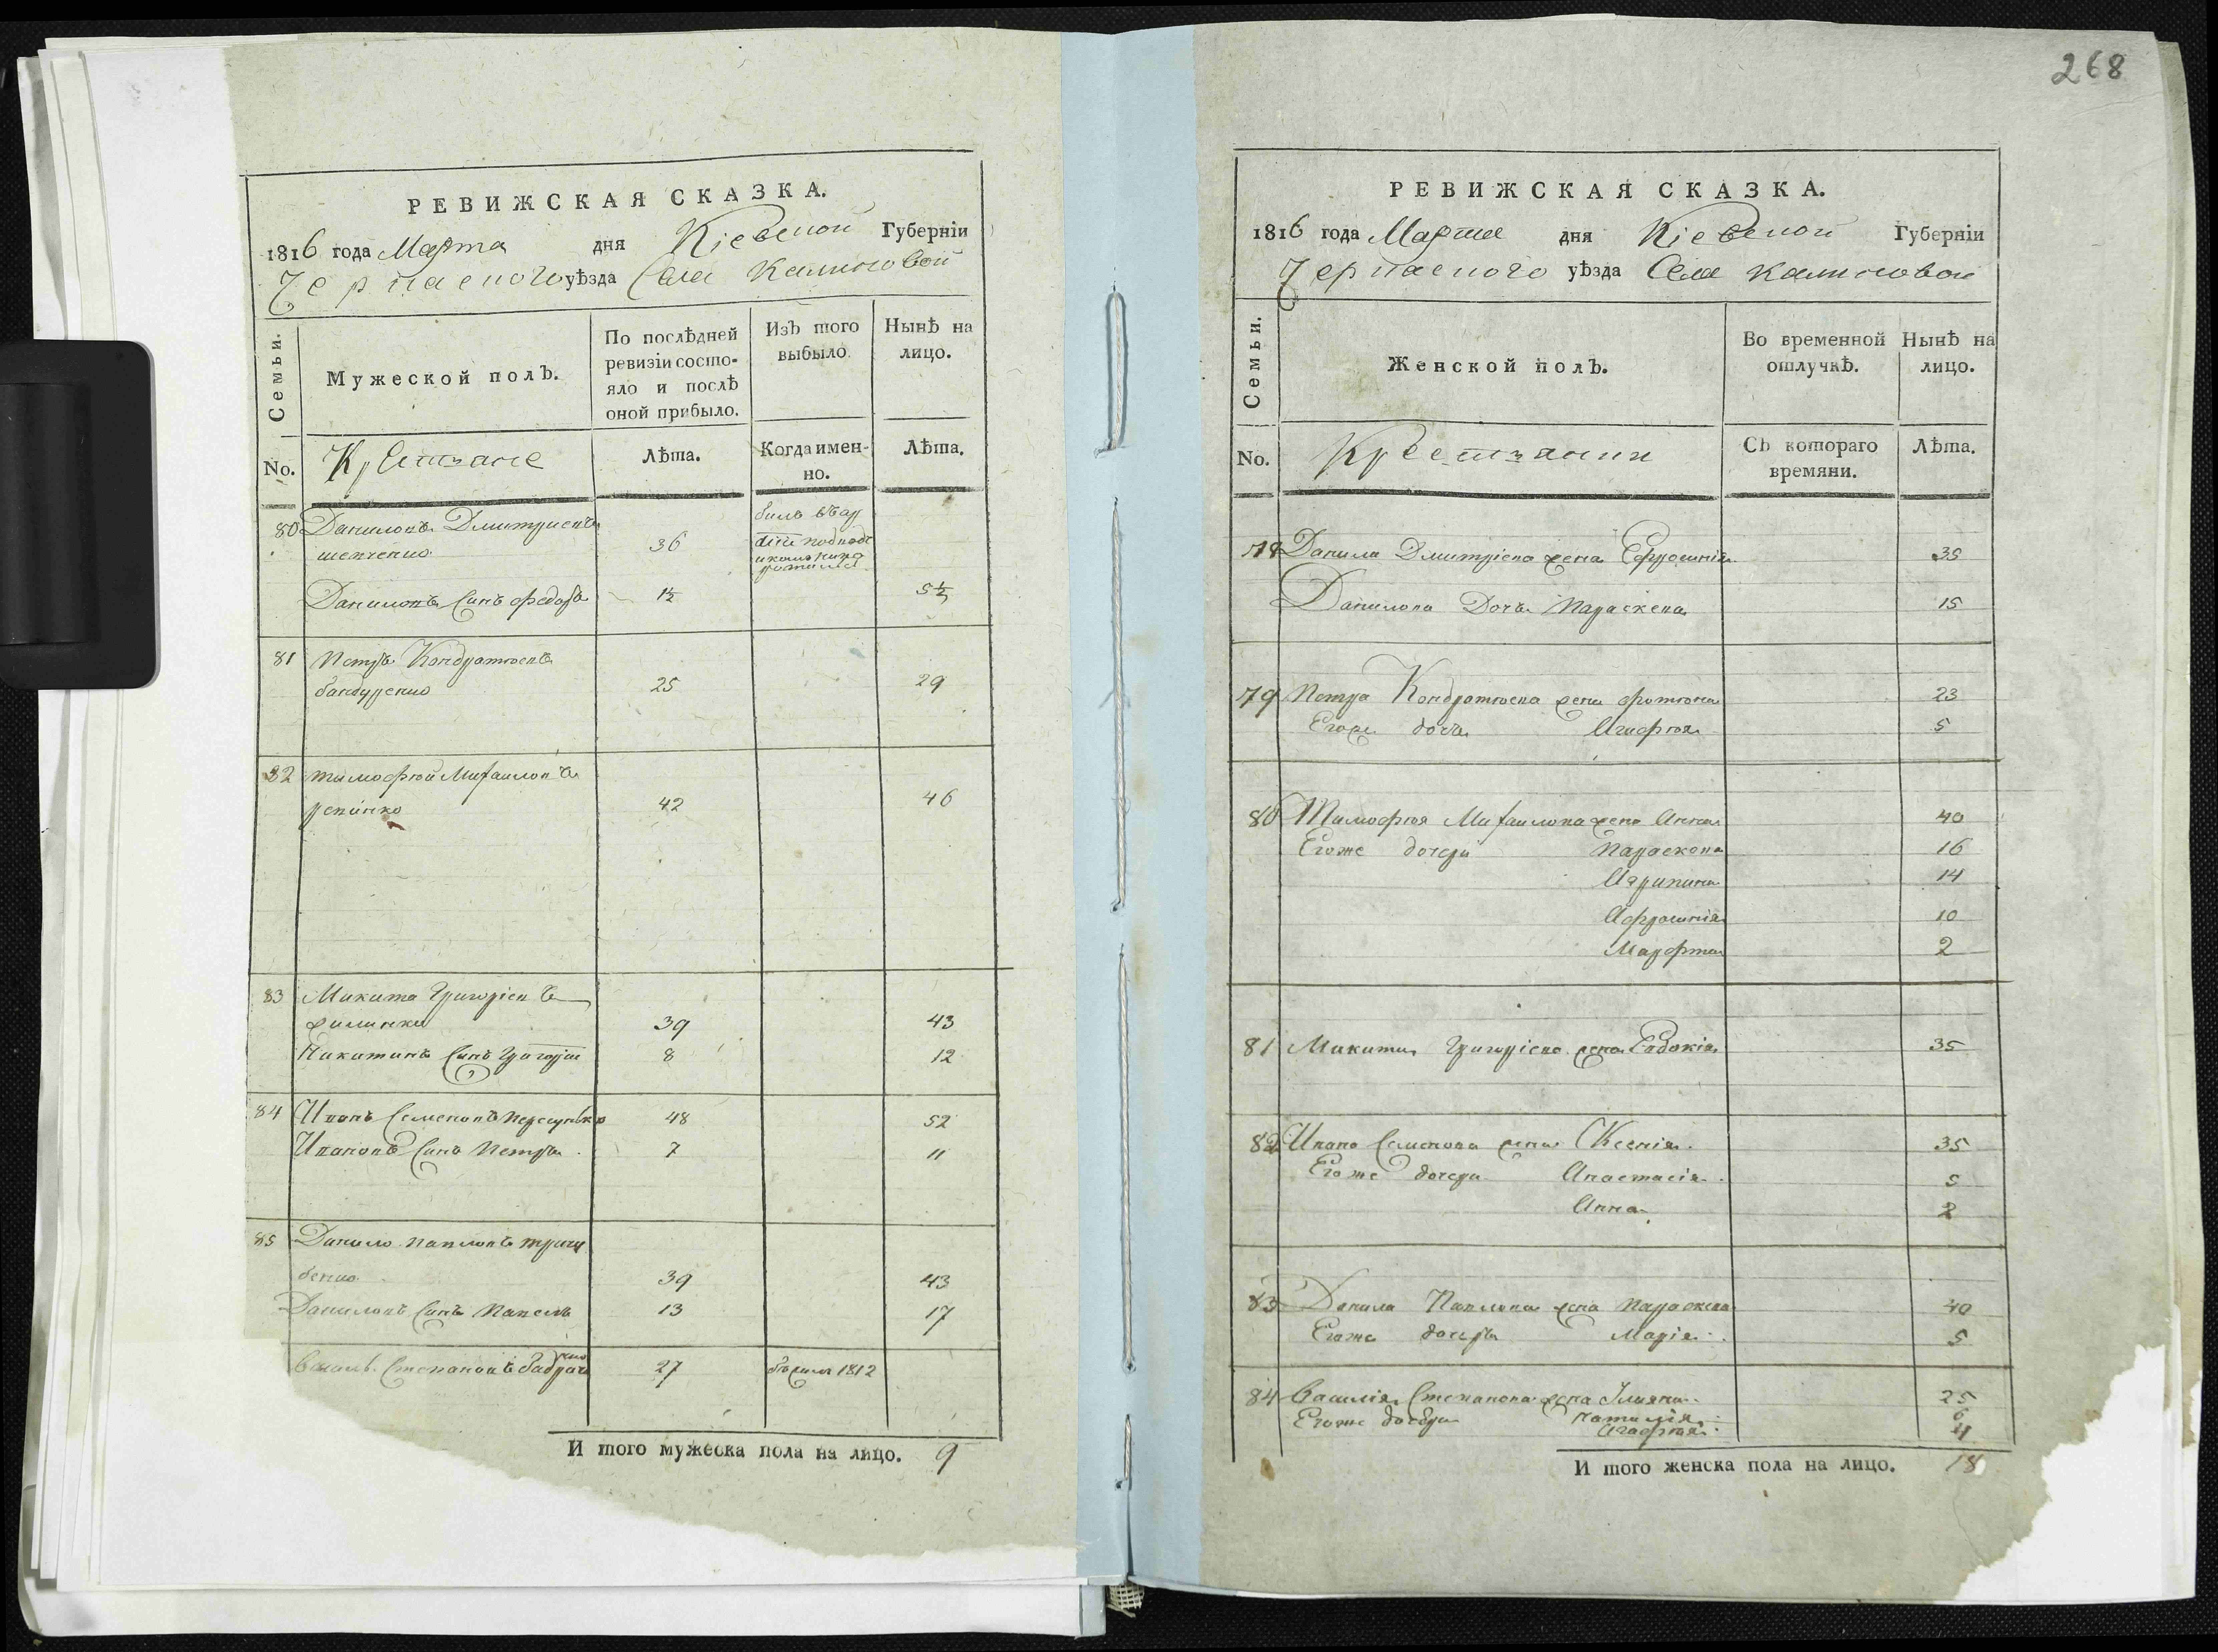 268
РЕВИЖСКАЯ СКАЗКА.
1816 года Марта дня Кіевской Губерніи
Черкаского уѣзда Села Калиновой
Семьи.
Мужеской полъ.
По послѣдней ревизіи состояло и послѣ оной прибыло.
Изъ того выбыло
Нынѣ на лицо.
No.
Крестяне
Лѣта.
Когда именно.
Лѣта.
80 Даниловъ Дмитриевъ
шевченко 36
Даниловъ Синъ Федоръ 1½ 5½
81 Петръ Кондратювъ
бандуренко 25 29
82 тимофюй Михаиловъ
42 46
83 Микита Григоріевъ
39 43
Никитинъ Синъ Григорій 8 12
84 Иванъ Семеновъ 48 52
Ивановъ Синъ Петръ 7 11
85 Данило Павловъ
39 43
Даниловъ Синъ Павелъ 13 17
Степановъ 27 1812
И того мужеска пола на лицо. 9
РЕВИЖСКАЯ СКАЗКА.
1816 года Марта дня Кіевской Губерніи
Черкаского уѣзда Села Калиновой
Семьи.
Женской полъ.
Во временной отлучкѣ.
Нынѣ на лицо.
No.
Крестянки
Съ котораго времяни.
Лѣта.
78 Данила Дмитріева жена Ефросинія 35
Данилова Дочъ Параскева 15
79 Петра Кондратюва жена 23
Егоже дочъ Агафюя 5
80 Тимофюя Михаилова жена Анна 40
Егоже дочери Параскева 16
Агрипина 14
Афросинія 10
Марфта 2
81 Микити Григоріева жена Евдокія 35
82 Ивана Семенова жена Ксенія 35
Егоже дочери Анастасія 5
Анна 2
83 Данила Павлова жена Параскева 40
Егоже дочеръ Марія 5
84 Василія Степанова жена Улияна 25
Егоже дочери Наталія 6
Агафюя 4
И того женска пола на лицо. 18